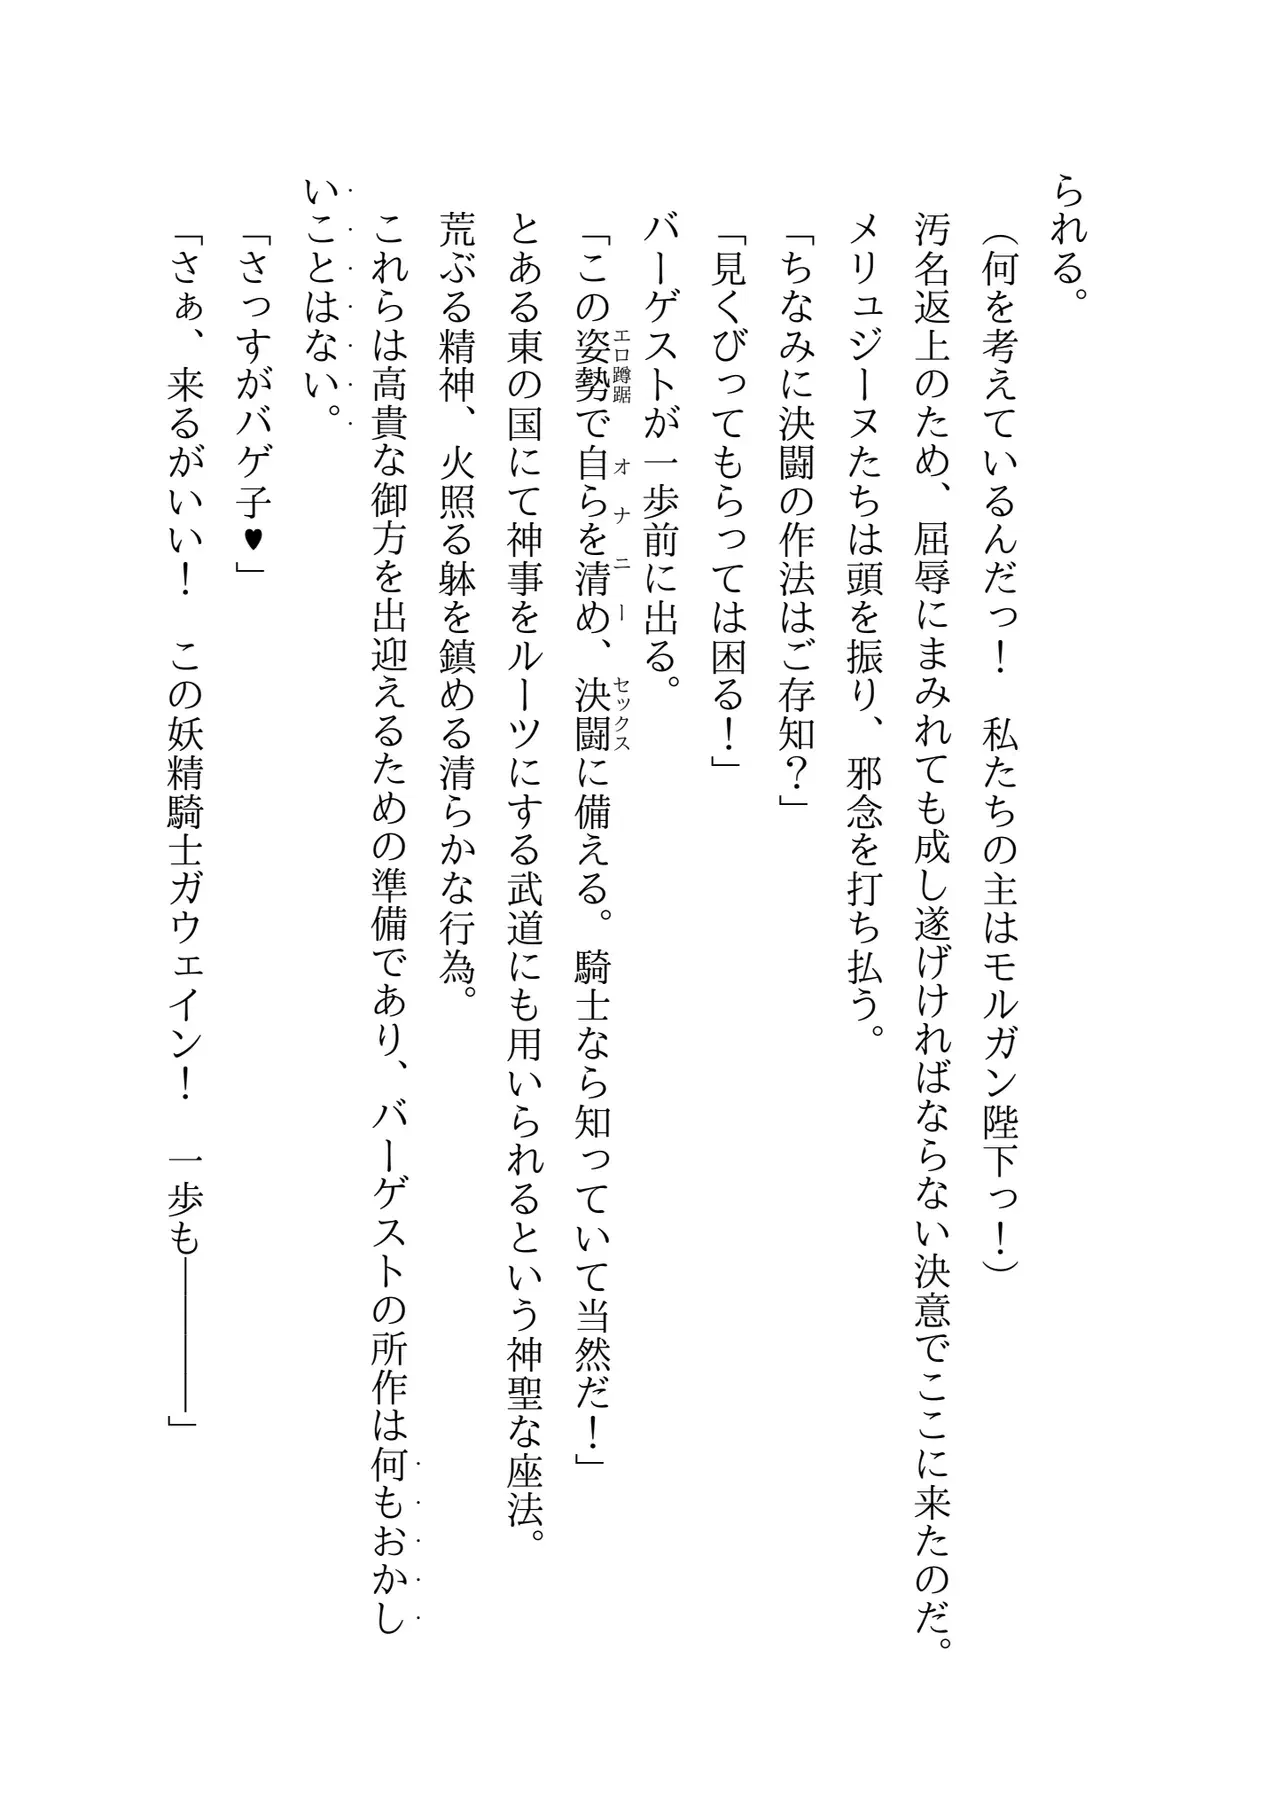 られる。
（何を考えているんだっ！　私たちの主はモルガン陛下っ！）
汚名返上のため、屈辱にまみれても成し遂げければならない決意でここに来たのだ。
メリュジーヌたちは頭を振り、邪念を打ち払う。
「ちなみに決闘の作法はご存知？」
「見くびってもらっては困る！」
バーゲストが一歩前に出る。
エロ蹲踞　オナニー　セックス
「この姿勢で自らを清め、決闘に備える。騎士なら知っていて当然だ！」
とある東の国にて神事をルーツにする武道にも用いられるという神聖な座法。
荒ぶる精神、火照る躰を鎮める清らかな行為。
これらは高貴な御方を出迎えるための準備であり、バーゲストの所作は何もおかし
いことはない。
「さっすがバゲ子♥」
「さぁ、来るがいい！　この妖精騎士ガウェイン！　一歩も――――」